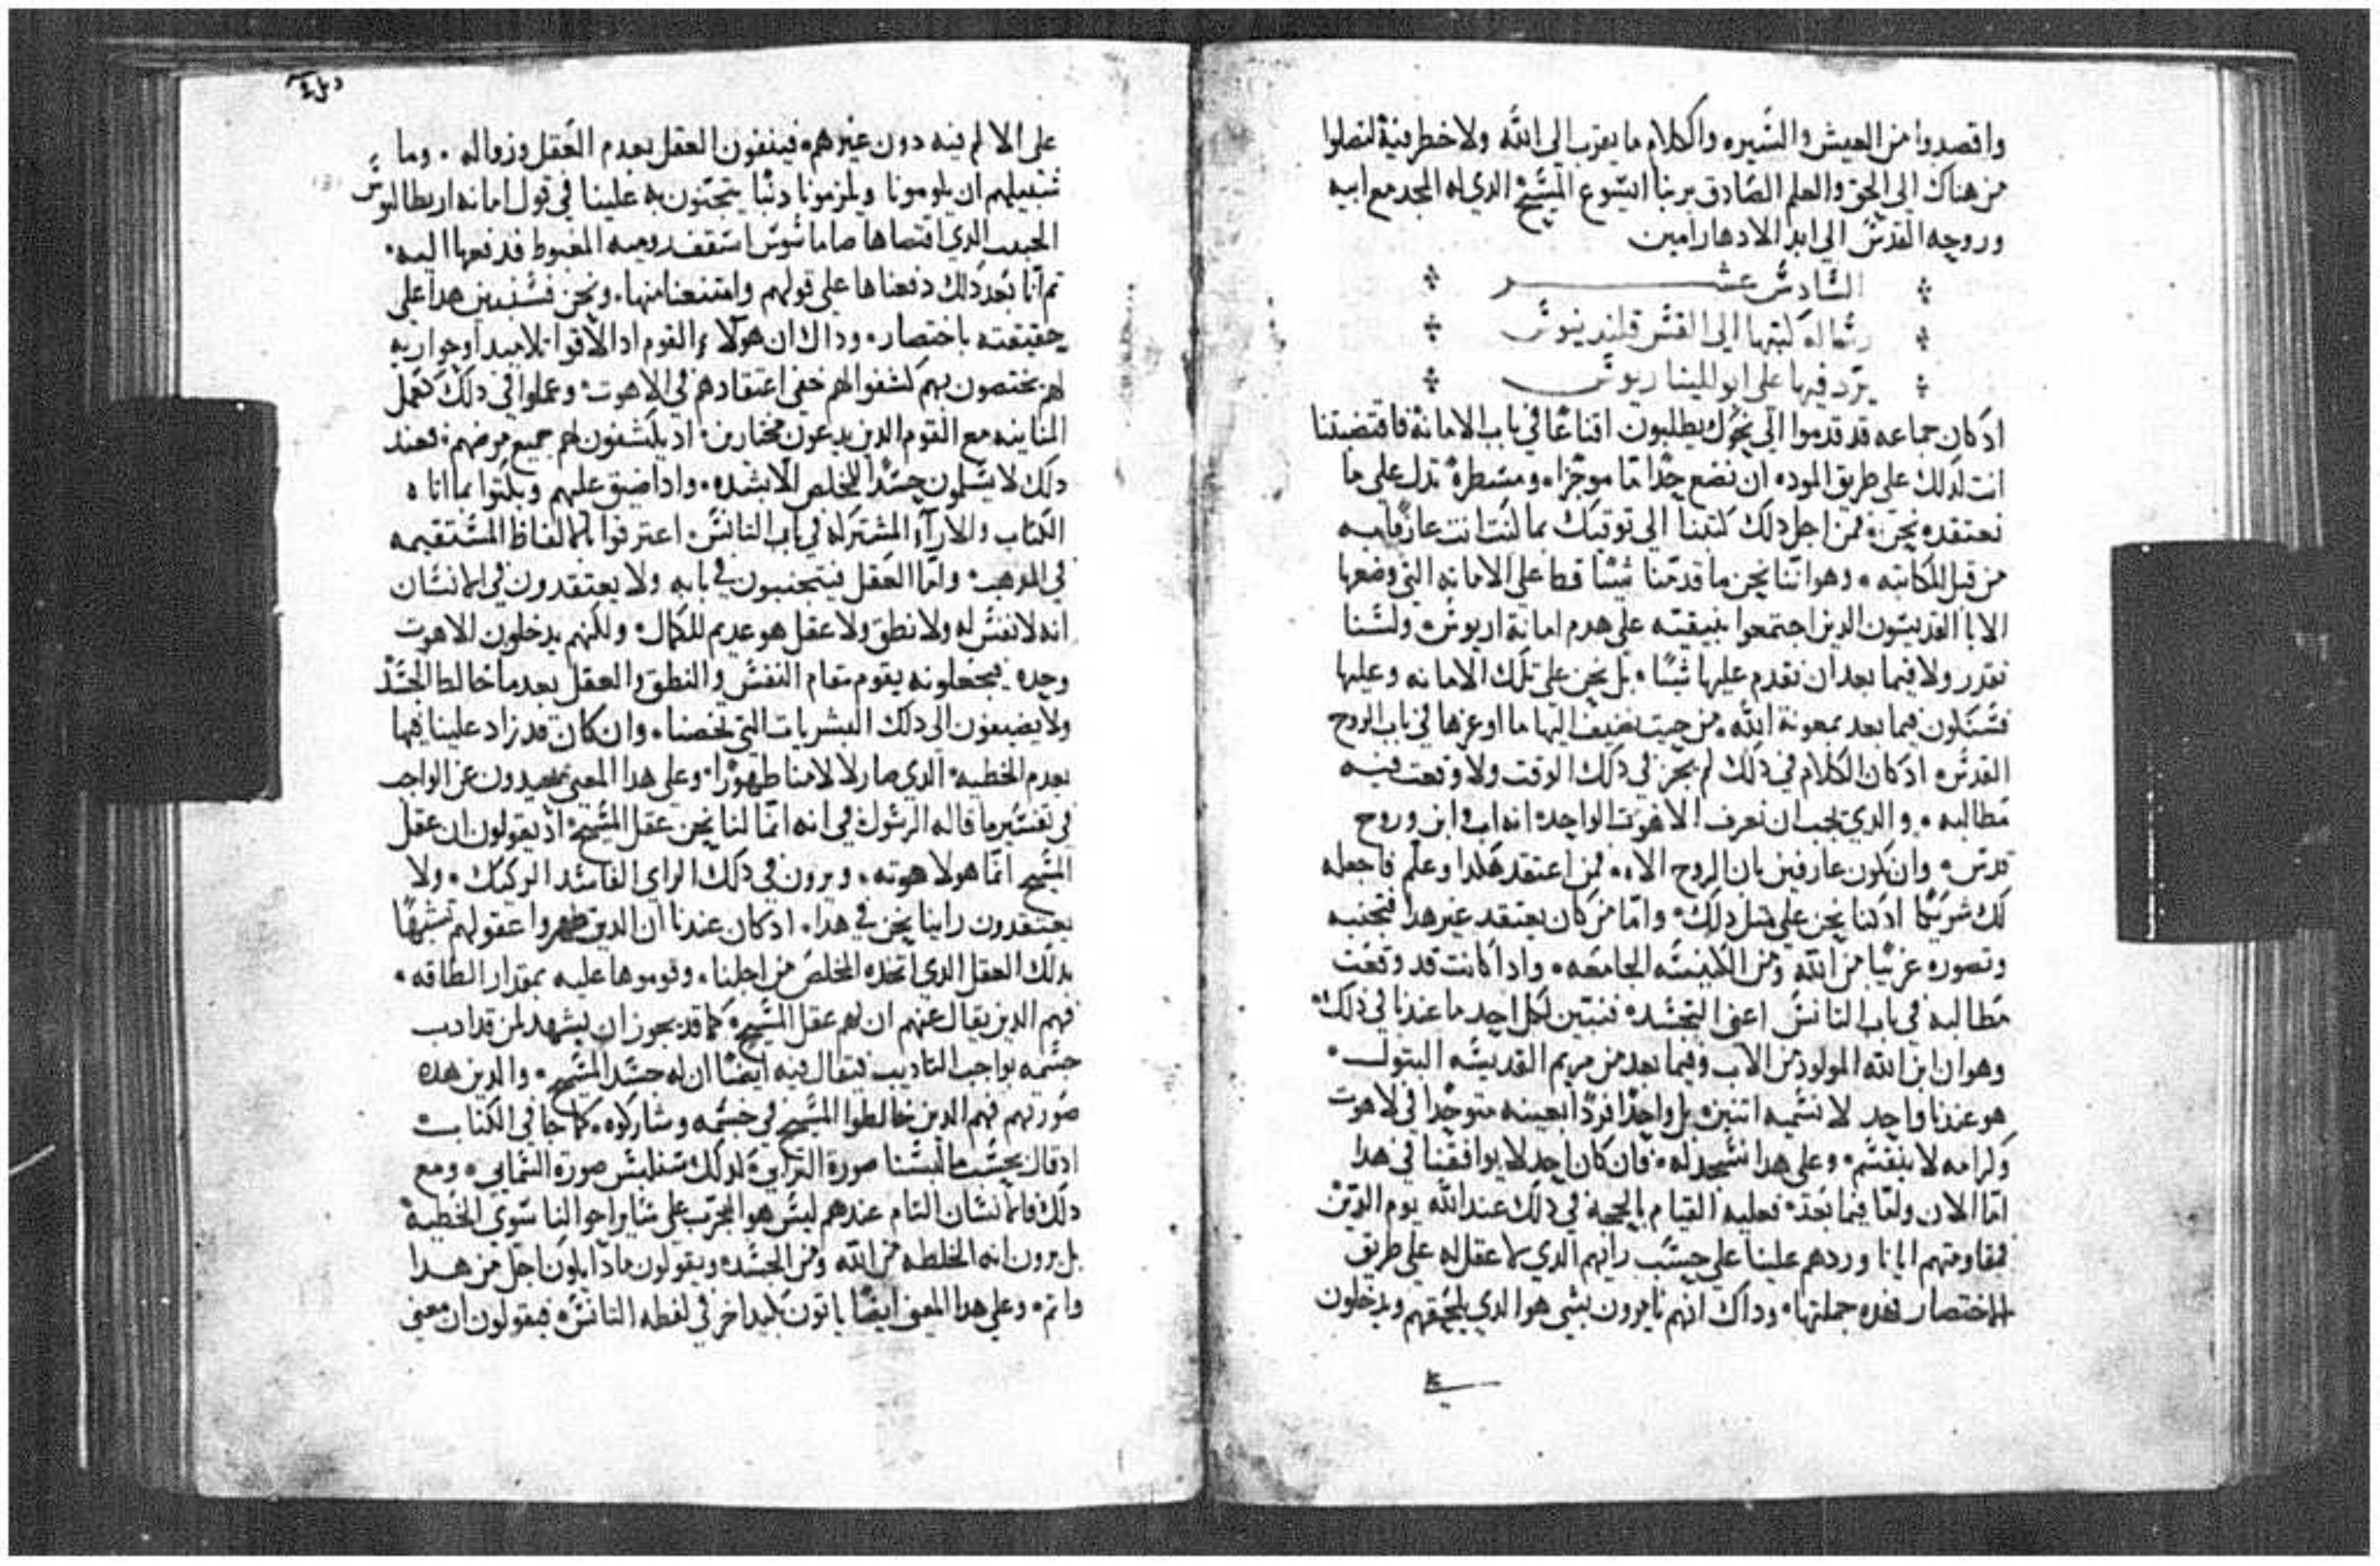 واقصدوا من العيش والسيره والكلام ما يقرب الى الله ولا خطر فيه لتصلوا
من هناك الى الحق والعلم الصادق بربنا ايسوع المسيح الدي له المجد مع ابيه
وروحه القدس الى ابد الادهار امين
السادس عشر
رساله كتبها الى القس قلنديوس
يرد فيها على ابوالليناريوس
اد كان جماعه قد قدموا الى نحوك يطلبون اقناعا في باب الامانة فاقتضيتنا
انت لدلك على طريق الموده ان نضع حدا ما موجزا ومسطرة تدل على ما
نعتقده نحن فمن اجل دلك كتبنا الى توقيك بما كنت انت عارفا به
من قبل المكاتبه وهو اننا نحن ما قدمنا شيئا قط على الامانه التي وضعها
الابا القديسون الدين اجتمعوا بنيقيه على هدم امانة اريوس ولسنا
نقدر ولا فيما بعد ان نقدم عليها شيئا بل نحن على تلك الامانه وعليها
فسنكون فيما بعد بمعونة الله من حيت نضيف اليها ما اوعزها في باب الروح
القدس اد كان الكلام في دلك لم يجز في دلك الوقت ولا وقعت فيه
مطالبه والدي يجب ان نعرف الاهوت الواحده انه اب وابن وروح
قدس وان نكون عارفين بان الروح الاه فمن اعتقد هكدا وعلم فاجعله
لك شريكا اد كنا نحن على متل دلك واما من كان يعتقد غير هدا فتجنبه
وتصوره غريبا من الله ومن الكنيسه الجامعه وادا كانت قد وقعت
مطالبه في باب التانس اعني التجسد فنبين لكل احد ما عندنا في دلك
وهو ان ابن الله المولود من الاب وفيما بعد من مريم القديسه البتول
هو عندنا واحد لا نسميه اتنين بل واحدا فردا بعينه متوحدا في لاهوت
وكرامه لا ينقسم وعلى هدا نسجد له فان كان احد لا يوافقنا في هدا
اما الان ولما فيما بعد فعليه القيام بالحجه في دلك عند الله يوم الدين
فمقاومتهم ايانا وردهم علينا على حسب رايهم الدي لا عقل له على طريق
الاختصار فهده جملتها وداك انهم يامرون بشي هو الدي يلحقهم ويدخلون
على الالم فيه دون غيرهم فينفون العقل بعدم العقل وزواله وما
سبيلهم ان يلومونا ويلزمونا دنبا يتجنون به علينا في قول امانه اربطاليوس
الحبيب الدي اقتصاها صاماسوس اسقف روميه المغبوط فدفعها اليه
تم انا بعد دلك دفعناها على قولهم وامتنعنا منها ونحن فسنبين هدا على
حقيقته باختصار وداك ان هولاء القوم ادا لاقوا تلاميد او حواريه
لهم يختصون بهم كشفوا لهم خفي اعتقادهم في الاهوت وعملوا في دلك كعمل
المنانيه مع القوم الدين يدعون مختارين اد يكشفون لهم جميع مرضهم فعند
دلك لا يسلمون جسدا للمخلص الا بشده وادا ضيق عليهم وبكتوا بما اتا به
الكتاب والاراء المشتركه في باب التانس اعترفوا بالالفاظ المستقيمه
في المدهب واما العقل فيتجنبون في بابه ولا يعتقدون في الانسان
انه لا نفس له ولا نطق ولا عقل هو عديم للكمال ولكنهم يدخلون الاهوت
وحده فيجعلونه يقوم مقام النفس والنطق والعقل بعد ما خالط الجسد
ولا يضيفون الى دلك البشريات التي تخصنا وان كان قد زاد علينا فيها
بعدم الخطيه الدي صار لالامنا طهورا وعلى هدا المعنى يحيدون عن الواجب
في تفسير ما قاله الرسول في انه انما لنا نحن عقل المسيح اد يقولون ان عقل
المسيح انما هو لاهوته ويرون في دلك الراي الفاسد الركيك ولا
يعتقدون راينا نحن في هدا اد كان عندنا ان الدين طهروا عقولهم تشبها
بدلك العقل الدي اتخده المخلص من اجلنا وقوموها عليه بمقدار الطاقه
فهم الدين يقال عنهم ان لهم عقل المسيح كما قد يجوز ان يشهد لمن قد ادب
جسمه بواجب التاديب فيقال فيه ايضا ان له جسد المسيح والدين هده
صورتهم فهم الدين خالطوا المسيح في جسمه وشاركوه كما جا في الكتاب
اد قال بحسب ما لبسنا صورة الترابي لدلك سنلبس صورة السمايي ومع
دلك فالانسان التام عندهم ليس هو المجرب على ساير احوالنا سوى الخطيه
بل يرون انه الخلطه من الله ومن الجسد ويقولون مادا يكون اجل من هدا
واتم وعلى هدا المعنى ايضا ياتون بكيد اخر في لفظه التانس فيقولون ان معنى